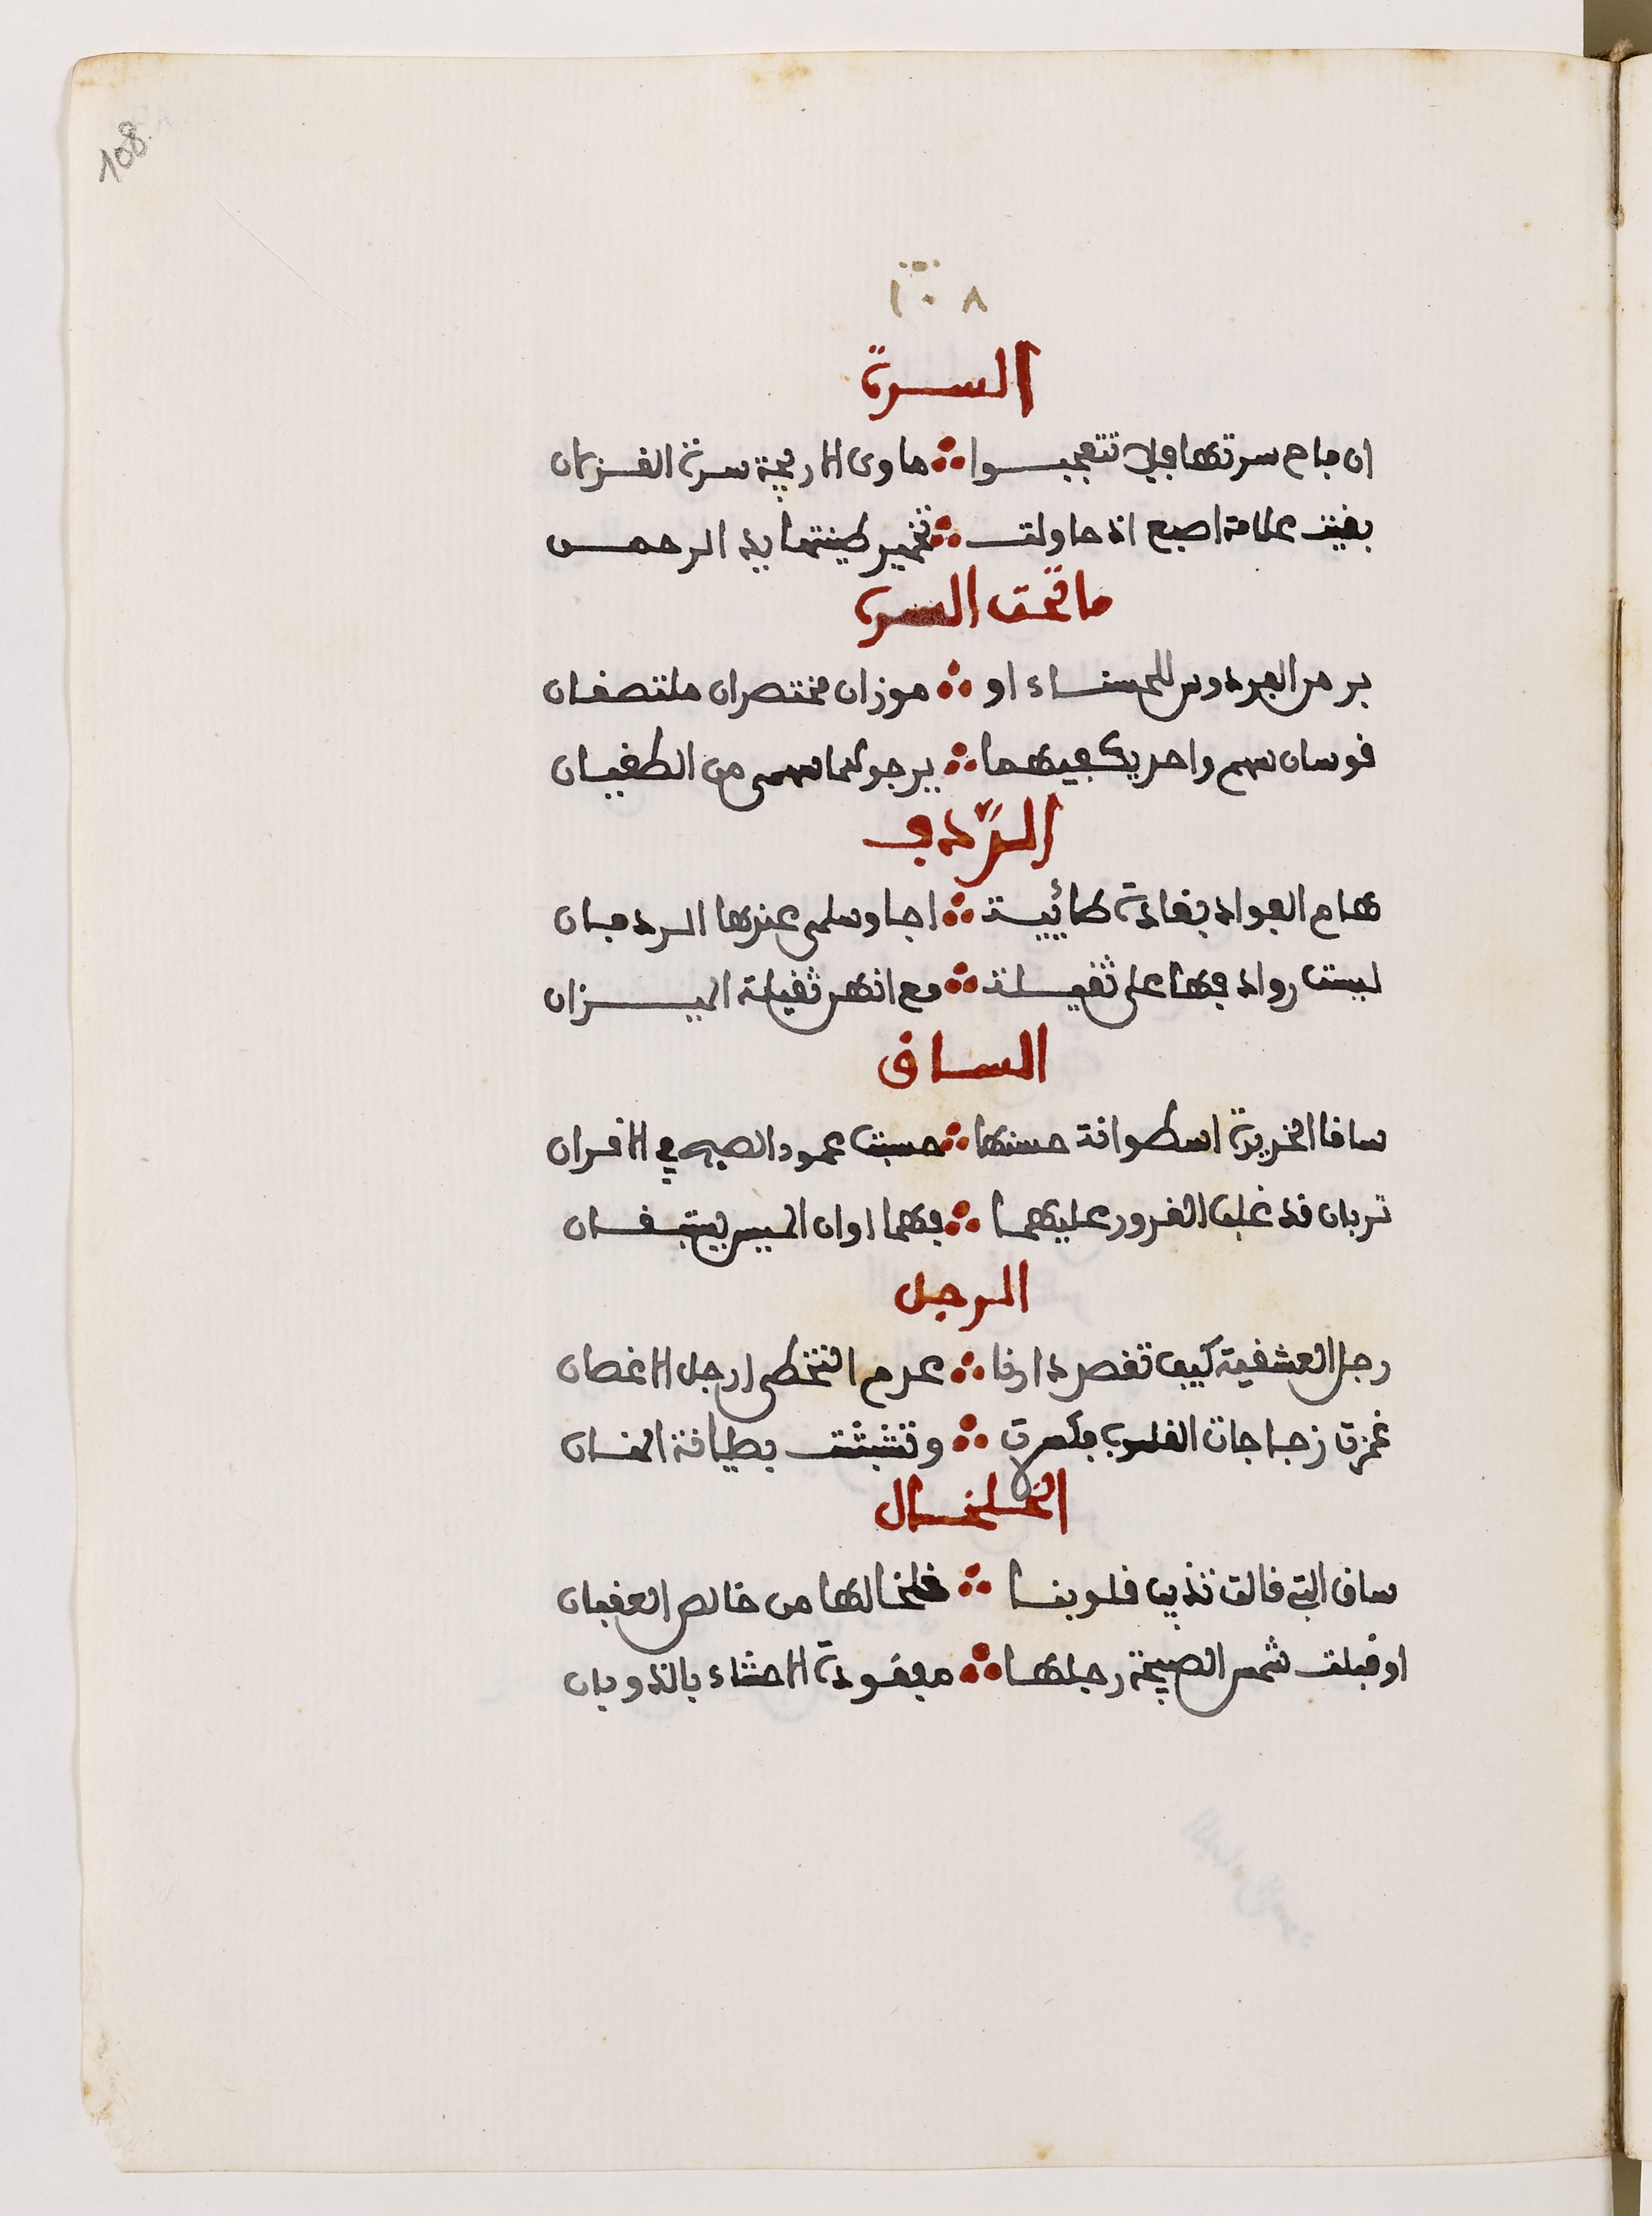 108
١٠٨
السرة
ان فاح سرتها فلا تتعجبوا ∴ ماوى الاريجة سرة الغزلان
بقيت علامة اصبع اذ حاولت ∴ تخمير طينتها يد الرحمن
ما تحت السرة
بر من الفردوس للحسناء او ∴ موزان مختصران ملتصقان
قوسان سهم واحد يكفيهما ∴ يرجو من الطغيان
الردف
هام الفواد بغادة طائية ∴ اجا وسلمى عندها الردفان
ليست روادفها على ثقيلة ∴ مع انهن ثقيلة الميزان
الساق
ساقا الخريدة اسطوانة حسنها ∴ حسبت عمود الصبح في الاقران
تربان قد غلب الغرور عليهما ∴ فهما اوان السير يستبقان
الرجل
رجل العشقية كيف تقصد دارنا ∴ عدم التخطى ارجل الاغصان
غمزت زجاجات القلوب ∴ وتشبثت
الخلخال
ساق التي قالت تذيب قلوبنا ∴ خلخالها من خالص العقيان
او قبلت شمس الصبيحة رجلها ∴ الاحشاء بالذوبان